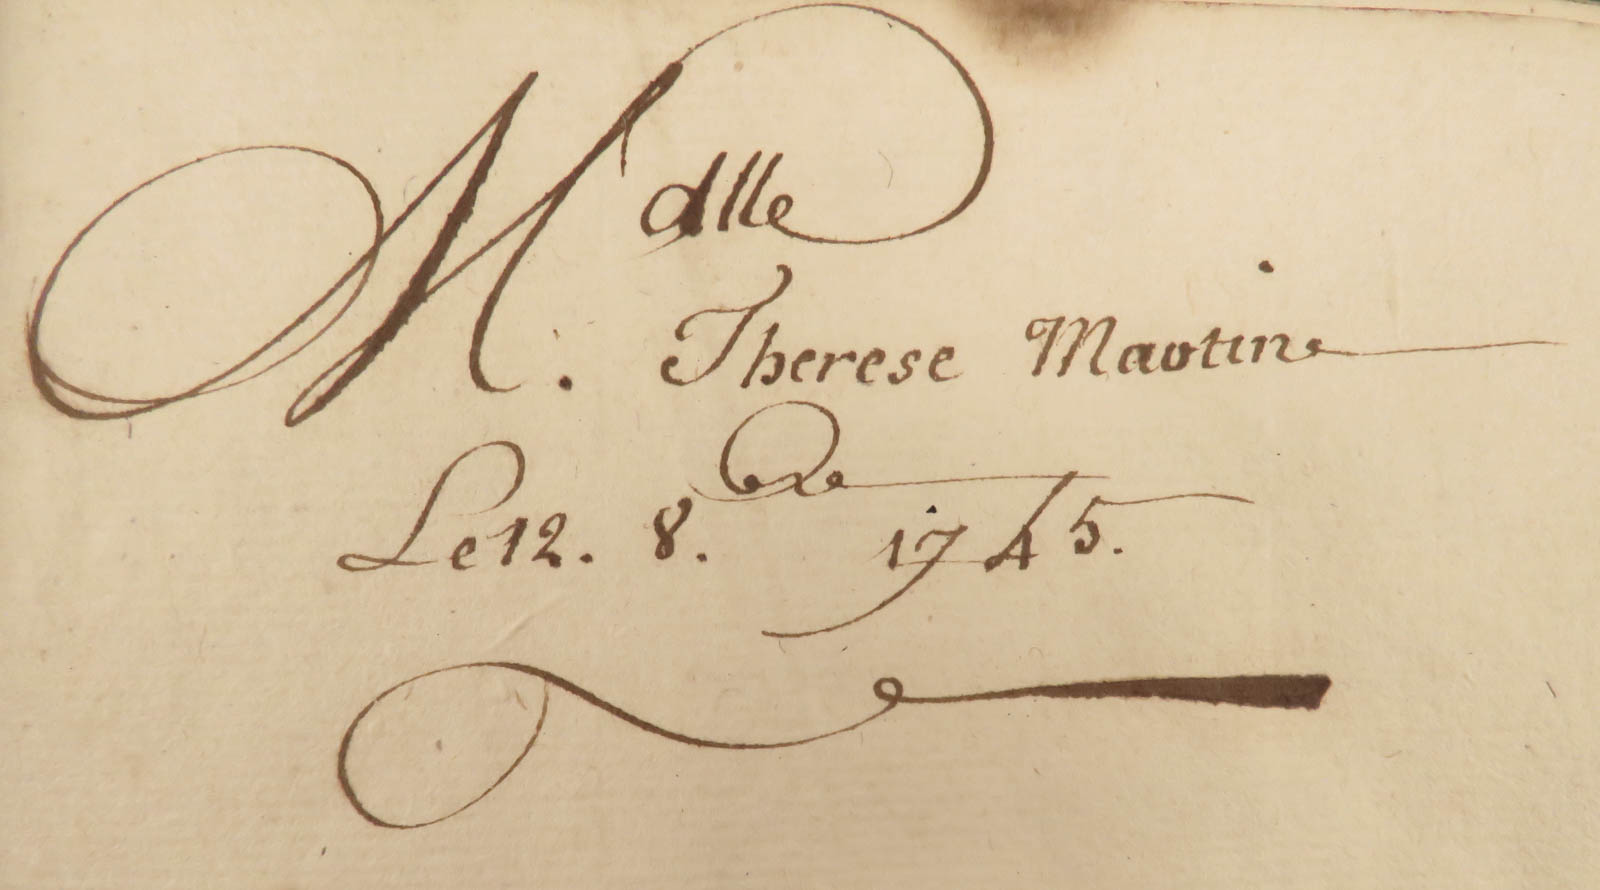 Mdlle.
Therese Martin
Le 12. 8.bre 1745.